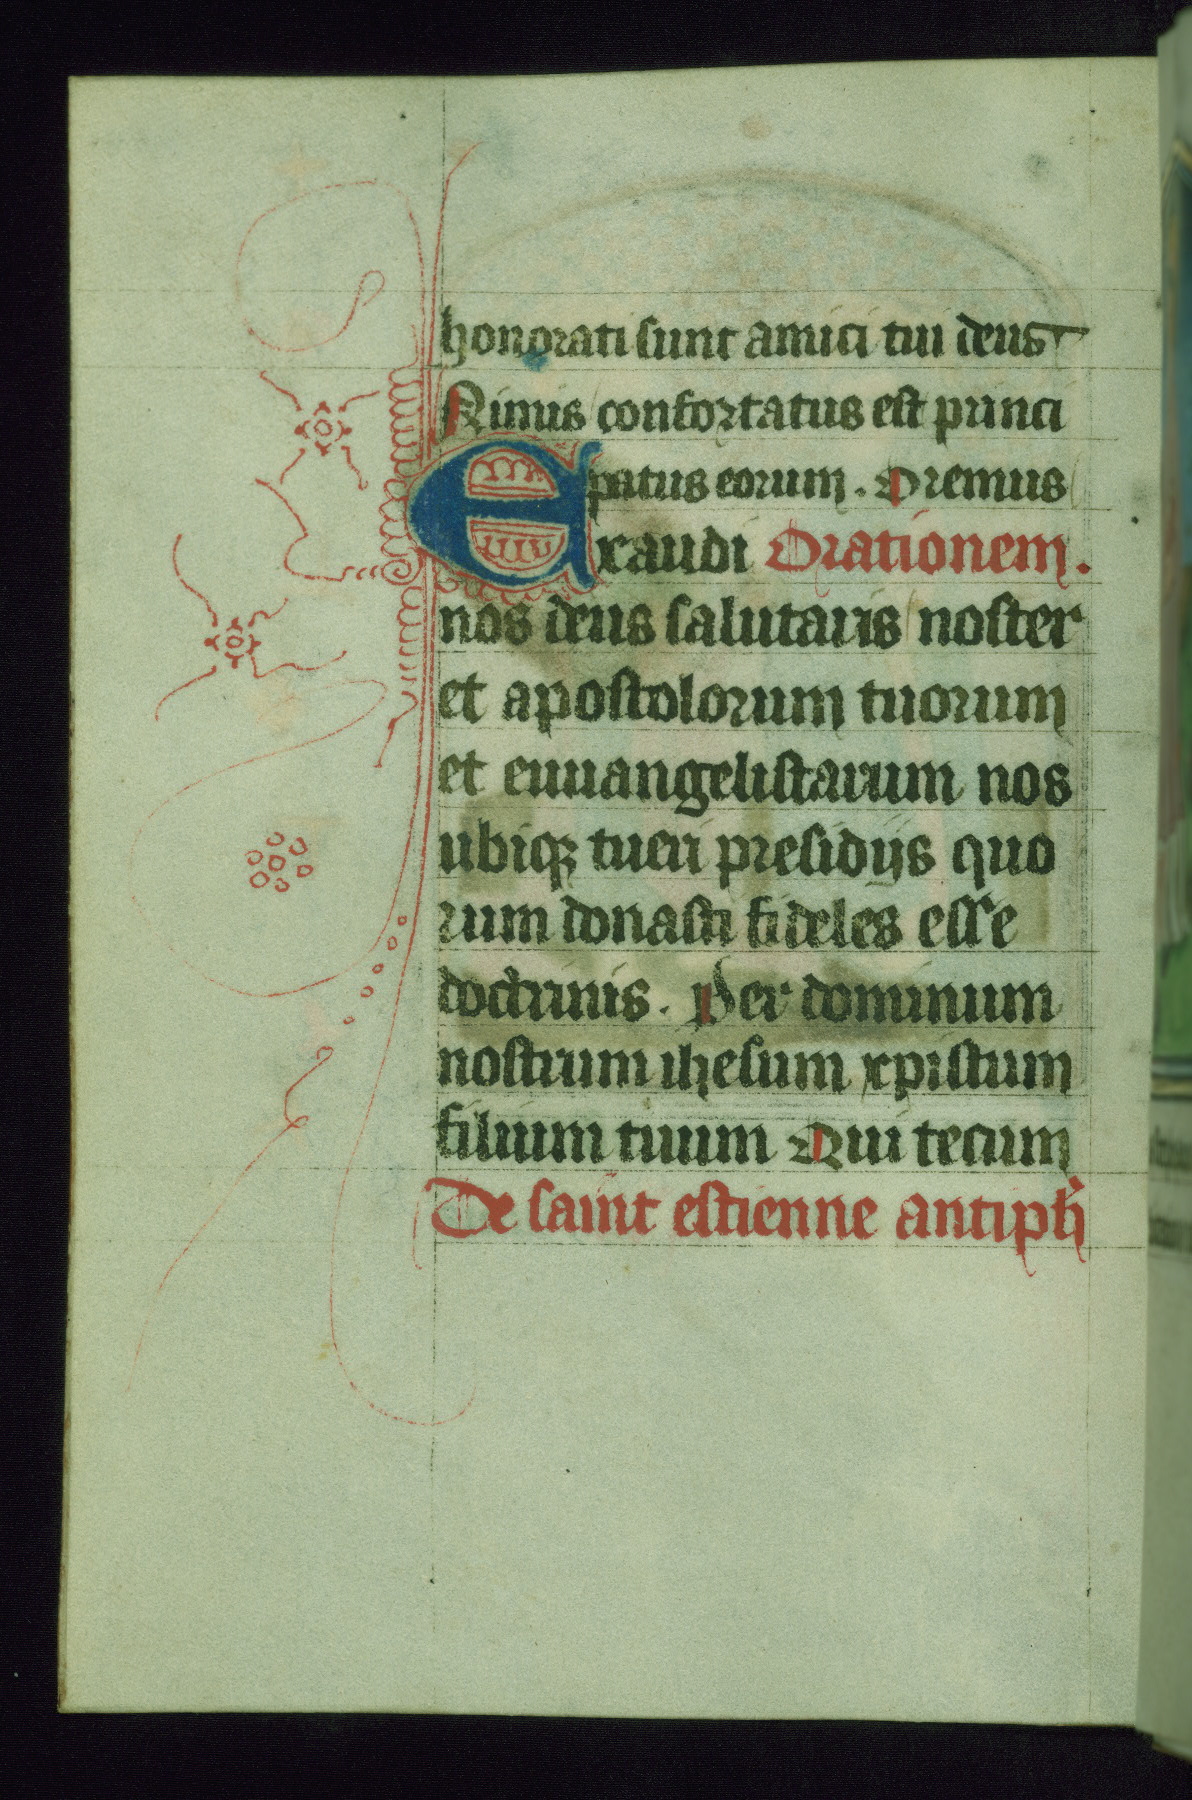 honorati sunt amici tui deus
Nimis confortatus est princi
patus eorum. Oremus
Exaudi Orationem.
nos deus salutaris noster
et apostolorum tuorum
et euuangelistarum nos
ubiqꝫ tueri presidijs quo
rum donasti fideles esse
doctrinis. Per dominum
nostrum ihesum xpistum
filium tuum Qui tecum
De saint estienne antiph̄